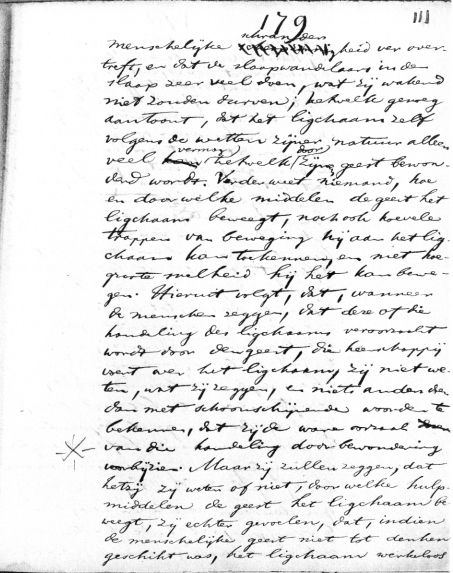 179
111
schranders
menschelijke gheid ver over-
treft, en dat de slaapwandelaars in den
slaap zeer veel doen, wat zij wakend
niet zouden durven; hetwelk genoeg
aantoont, dat het ligchaam zelf
volgens de wetten zijner natuur alleen
vermag door
veel hetwelk zijne geest bewon-
derd wordt. Verder weet niemand, hoe
en door welke middelen de geest het
ligchaam beweegt, noch ook hoevele
trappen van beweging hij aan het lig-
chaam kan toekennen, en met hoe-
groote snelheid hij het kan bewe-
gen. Hieruit volgt, dat, wanneer
de menschen zeggen, dat deze of die
handeling des ligchaams veroorzaakt
wordt door den geest, die heerschappij
voert over het ligchaam, zij niet we-
ten, wat zij zeggen, en niets anders doen
dan met schoonschijnende woorden te
bekennen, dat zij de ware oorzaak
van die handeling door bewondering
voorbijzien. Maar zij zullen zeggen, dat
hetzij zij weten of niet, door welke hulp-
middelen de geest het ligchaam be-
weegt, zij echter gevoelen, dat, indien
de menschelijke geest niet tot denken
geschikt was, het ligchaam werkeloos